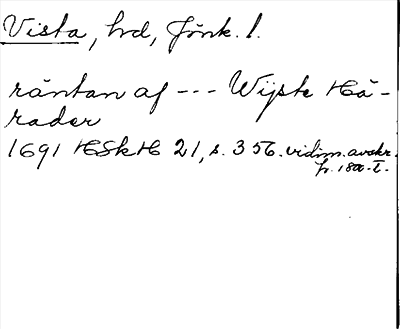 Vista, hd, Jönk. l.
räntan af --- Wijste Hä-
rader
1691 HSkH 21, s. 356. vidim. avskr.
fr. 1800-t.